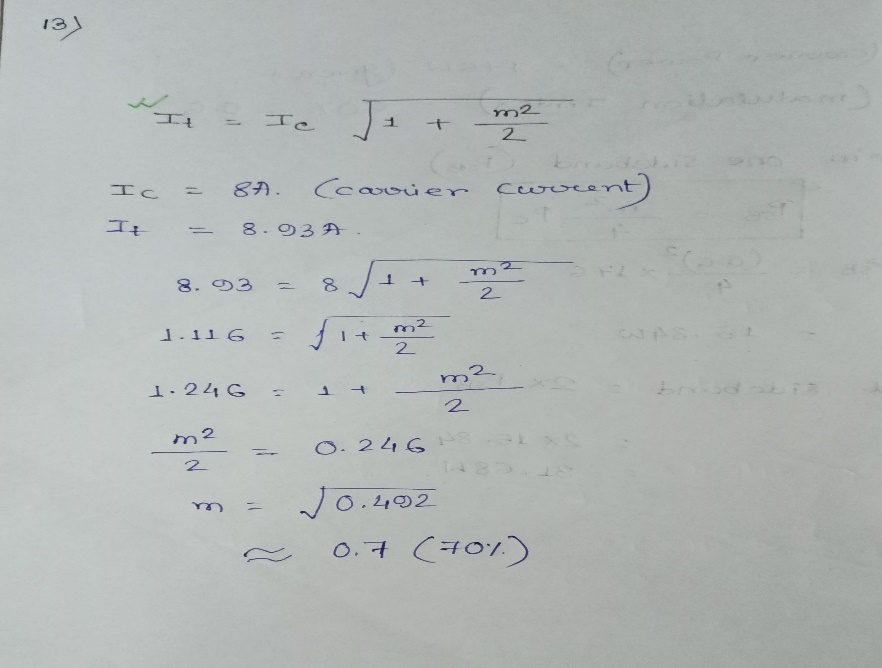 13)
It = Ic √(1 + m²/2)
Ic = 8A. (carrier current)
It = 8.93A.
8.93 = 8 √(1 + m²/2)
1.116 = √(1 + m²/2)
1.246 = 1 + m²/2
m²/2 = 0.246
m = √0.492
≈ 0.7 (70%)